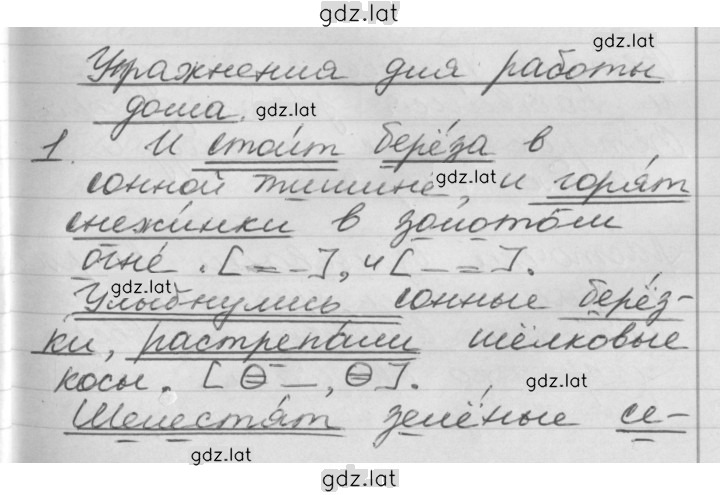 gdz.lat
gdz.lat
Упражнения для работы
дома. gdz.lat
1. И стои́т берёза в
сонной тишине́, и горя́т gdz.lat
снежи́нки в золото́м
огне́. [= –], и [– =].
gdz.lat
Улыбну́лись сонные берёз-
ки, растрепа́ли шёлковые
косы. [⊖ –, ⊖]. gdz.lat
Шелестя́т зелёные се-
gdz.lat
gdz.lat